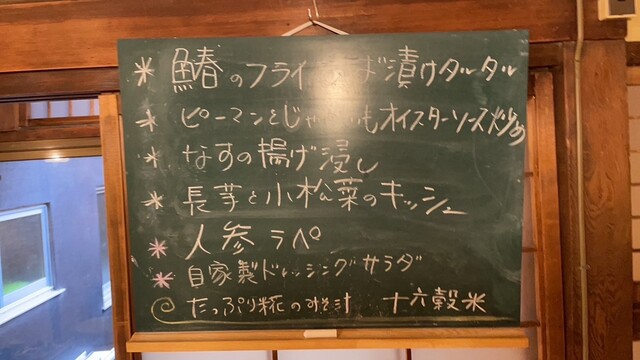 * 鰆のフライ ど漬けタルタル
* ピーマンとじゃがいもオイスターソース炒め
* なすの揚げ浸し
* 長芋と小松菜のキッシュ
* 人参ラペ
* 自家製ドレッシングサラダ
たっぷり糀のみそ汁 十六穀米